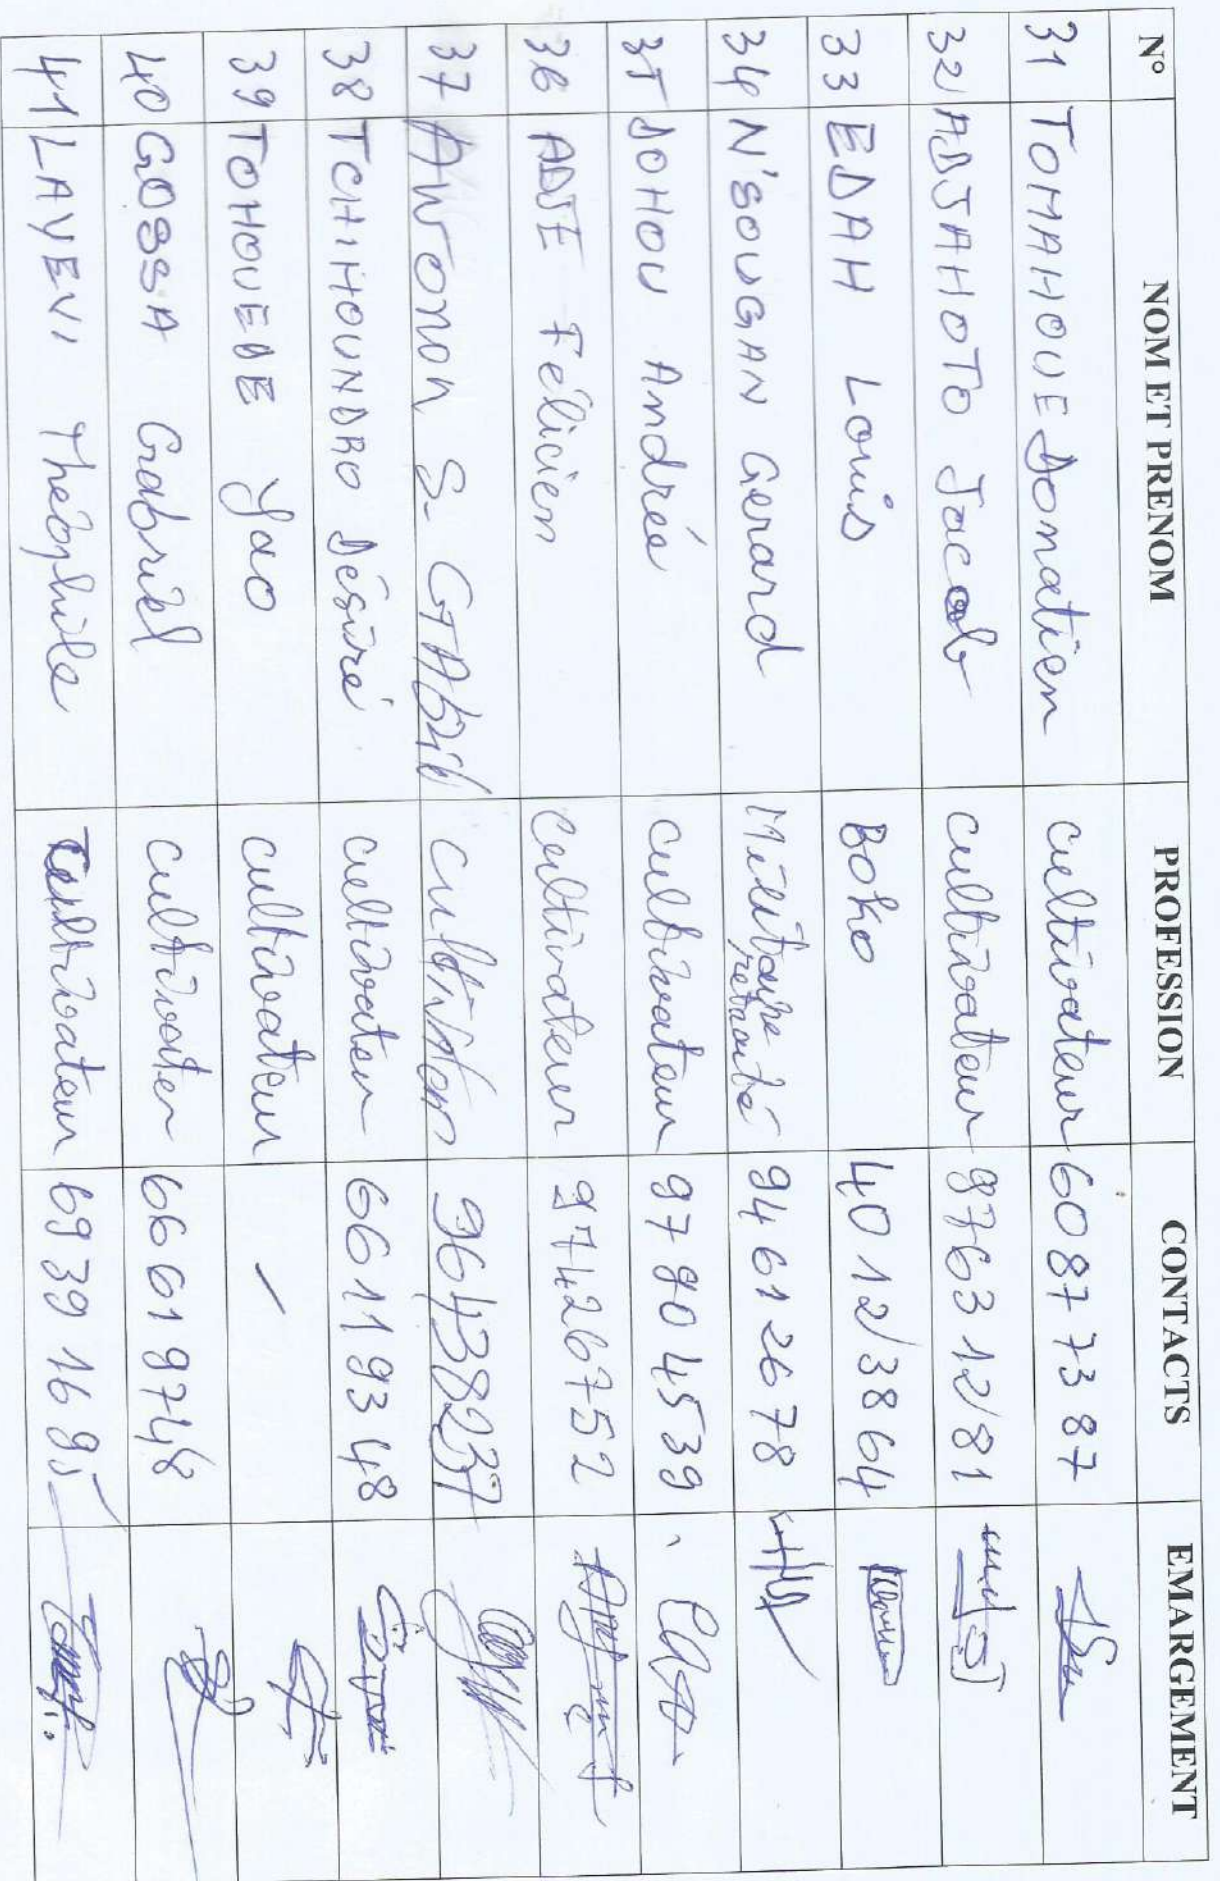 N° NOM ET PRENOM PROFESSION CONTACTS EMARGEMENT
31 TOMAHOUE Donatien cultivateur 60 87 73 87
32 ADJAHOTO Jacob cultivateur 97 63 12 81
33 EDAH Louis Boko 40 12 38 64
34 N'SOUGAN Gerard Militaire retraité 94 61 26 78
35 DOHOU Andrée cultivateur 97 90 45 39
36 ADJE Félicien Cultivateur 97426752
37 AWONON S. GABriel cultivateur 96438237
38 TCHIHOUNDRO Désiré cultivateur 66 11 93 48
39 TOHOUEDE Yao cultivateur /
40 GOSSA Gabriel cultivateur 66 61 97 48
41 LAYEVI Théophile Cultivateur 69 39 16 95